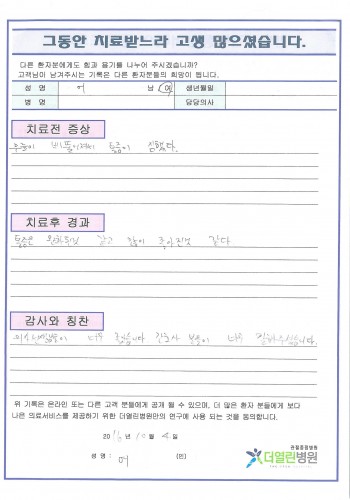 그동안 치료받느라 고생 많으셨습니다.
다른 환자분에게도 힘과 용기를 나누어 주시겠습니까?
고객님이 남겨주시는 기록은 다른 환자분들의 희망이 됩니다.
성 명 어 남 여 생년월일
병 명 담당의사
치료전 증상
통증이 심했다.
치료후 경과
통증은 많이 좋아진것 같다
감사와 칭찬
너무 친절합니다 간호사 분들이 너무 잘해주십니다.
위 기록은 온라인 또는 다른 고객 분들에게 공개 될 수 있으며, 더 많은 환자 분들에게 보다
나은 의료서비스를 제공하기 위한 더열린병원만의 연구에 사용 되는 것을 동의합니다.
20 년 월 4 일
성 명 : 어 (인)
관절중점병원
더열린병원